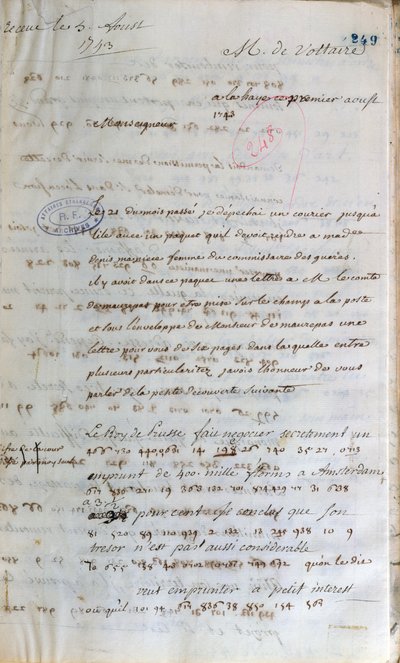 receue le 5. Aoust
1743
M. de Voltaire
249
a la haye ce premier aoust
1743
248
Monseigneur
AFFAIRES ETRANGERES
R.F.
ARCHIVES
Le 21 du mois passé je depéchai un courier jusqu'a
lile avec un paquet qu'il devoit rendre a mad^e
denis ma niece femme du commissaire des gueres.
il y avoit dans ce paquet une lettre a M. le comte
de maurepas pour etre mise sur le champ a la poste
et sous l'enveloppe de Monsieur de maurepas une
lettre pour vous de six pages dans laquelle entre
plusieurs particularitez javois l'honneur de vous
parler de la petite decouverte suivante
Le Roy de Prusse fait negocier secretement un
466 730 14 198 26 140 35 27
emprunt de 400 mille florins a Amsterdam
19 363 132 201 31 638
a 3½
pour cent
que son
81 520 89 110 939 2 132 13 248 938 10 9
tresor n'est pas aussi considerable
70 655 138 40 qu'on le dit
veut emprunter a petit interest
ou qu'il 301 94 836 38 850 154 363